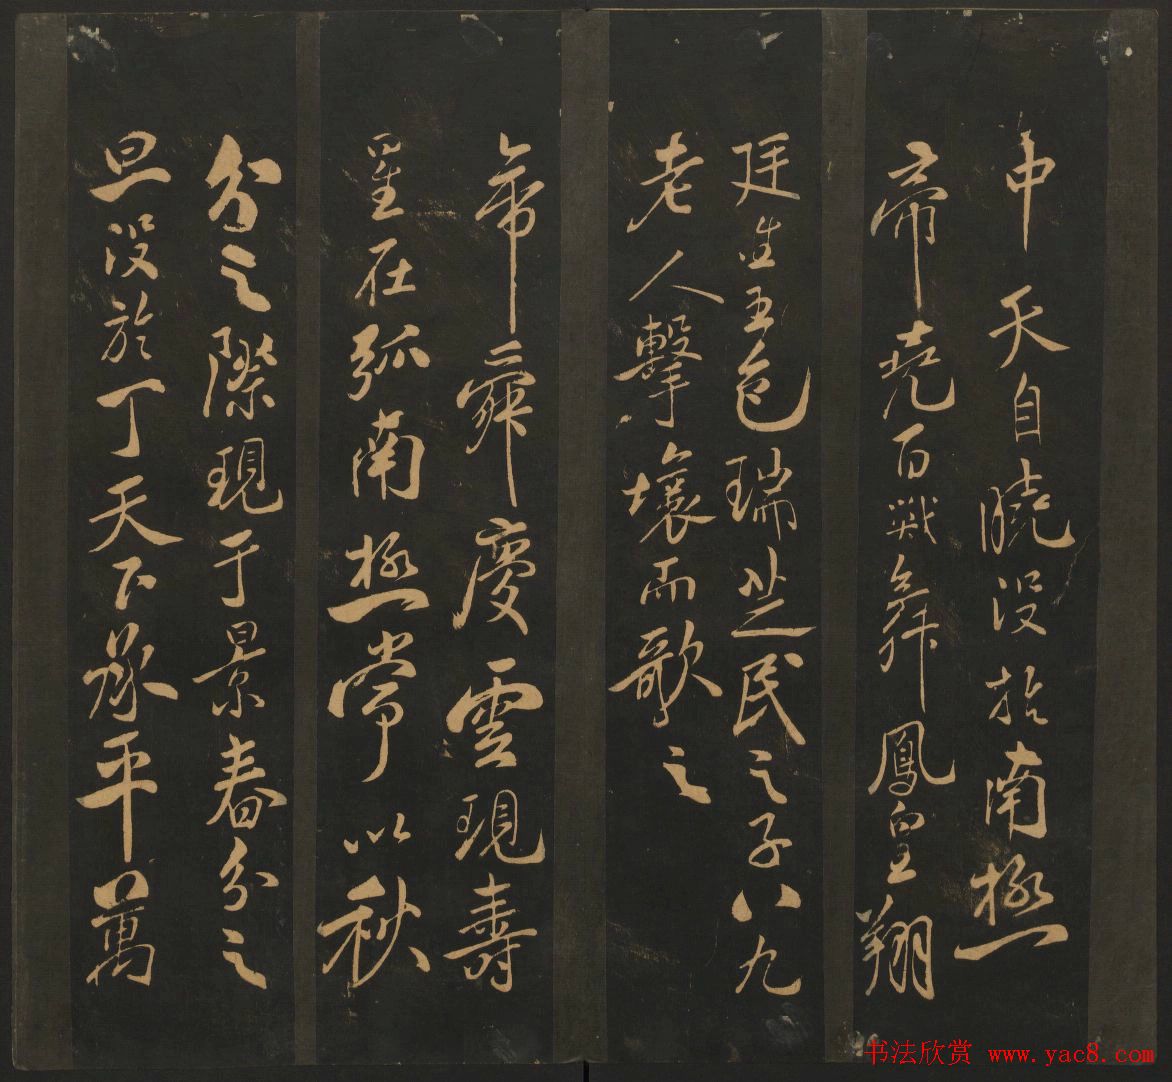 申天自曉没於南極
帝堯百獸舞鳳皇翔
廷生五色瑞芝民之子八九
老人擊壤而歌之
帝舜慶雲現壽
星在弧南極常以秋
分之際現于景春分之
旦没於丁天下承平萬
书法欣赏 www.yac8.com